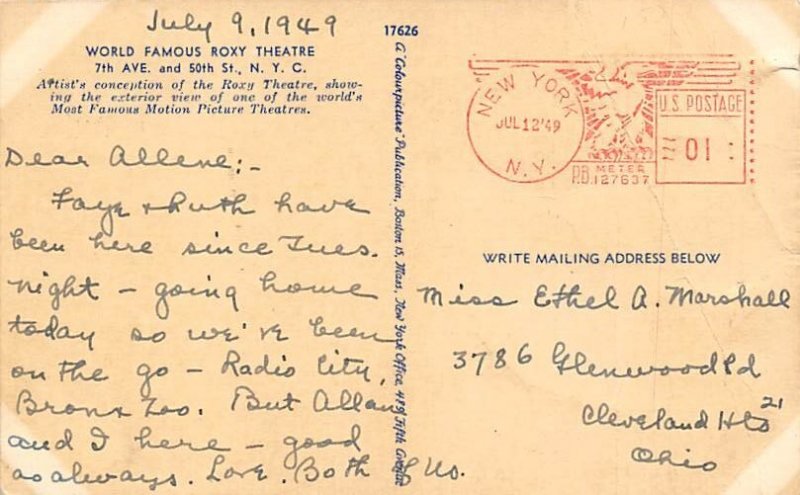 July 9, 1949
WORLD FAMOUS ROXY THEATRE
7th AVE. and 50th St., N. Y. C.
Artist's conception of the Roxy Theatre, show-
ing the exterior view of one of the world's
Most Famous Motion Picture Theatres.
Dear Allene:-
Faye & Ruth have
been here since Tues.
night - going home
today so we've been
on the go - Radio City,
Bronx Zoo. But Allan
and I here - good
as always. Love. Both of Us.
17626
A "Colourpicture" Publication, Boston 15, Mass., New York Office, 489 Fifth Avenue
NEW YORK
JUL 12 '49
N.Y.
U.S. POSTAGE
01
METER
P.B. 127637
WRITE MAILING ADDRESS BELOW
Miss Ethel A. Marshall
3786 Glenwood Rd
Cleveland Hts 21
Ohio